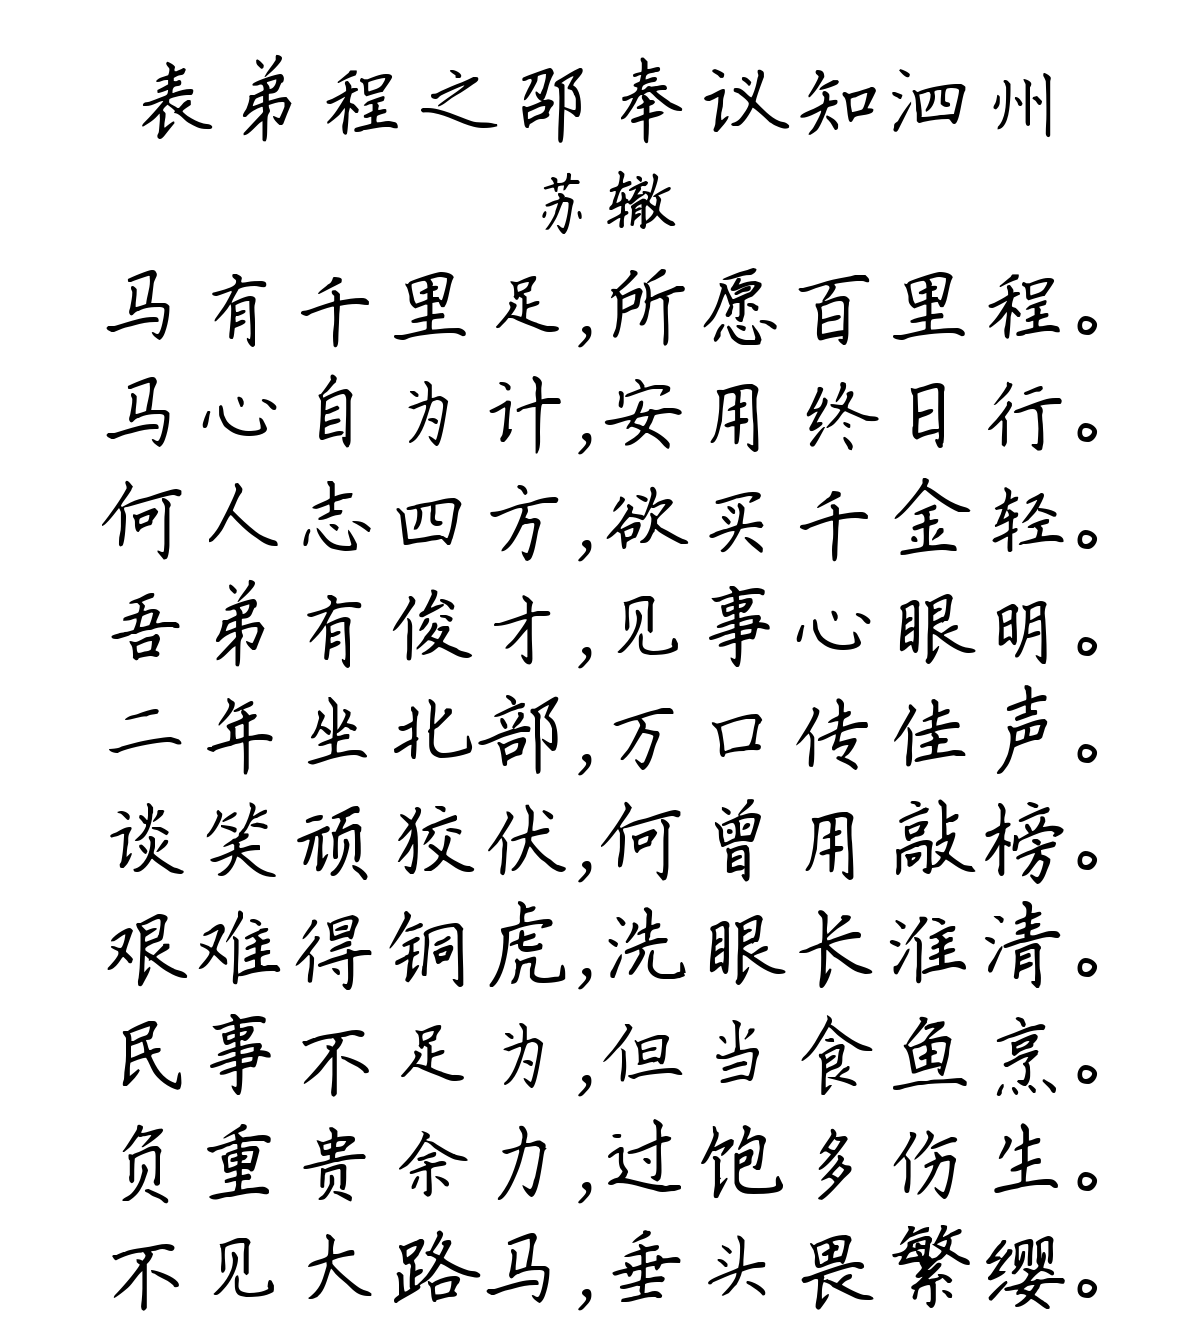 表弟程之邵奉议知泗州
苏辙
马有千里足,所愿百里程。
马心自为计,安用终日行。
何人志四方,欲买千金轻。
吾弟有俊才,见事心眼明。
二年坐北部,万口传佳声。
谈笑顽狡伏,何曾用敲榜。
艰难得铜虎,洗眼长淮清。
民事不足为,但当食鱼烹。
负重贵余力,过饱多伤生。
不见大路马,垂头畏繁缨。